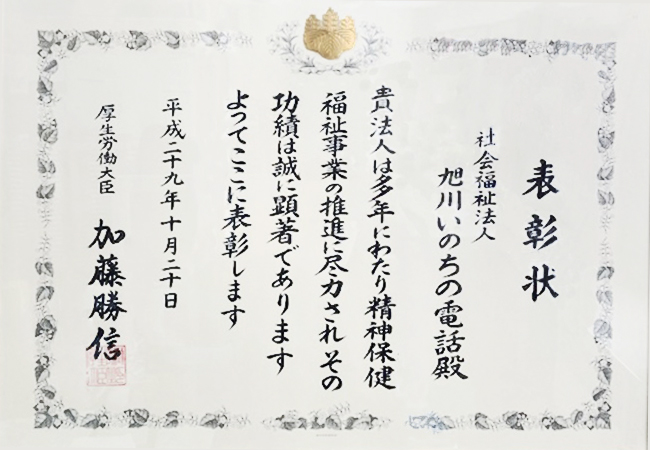 表彰状
社会福祉法人
旭川いのちの電話殿
貴法人は多年にわたり精神保健
福祉事業の推進に尽力されその
功績は誠に顕著であります
よってここに表彰します
平成二十九年十月二十日
厚生労働大臣
加藤勝信